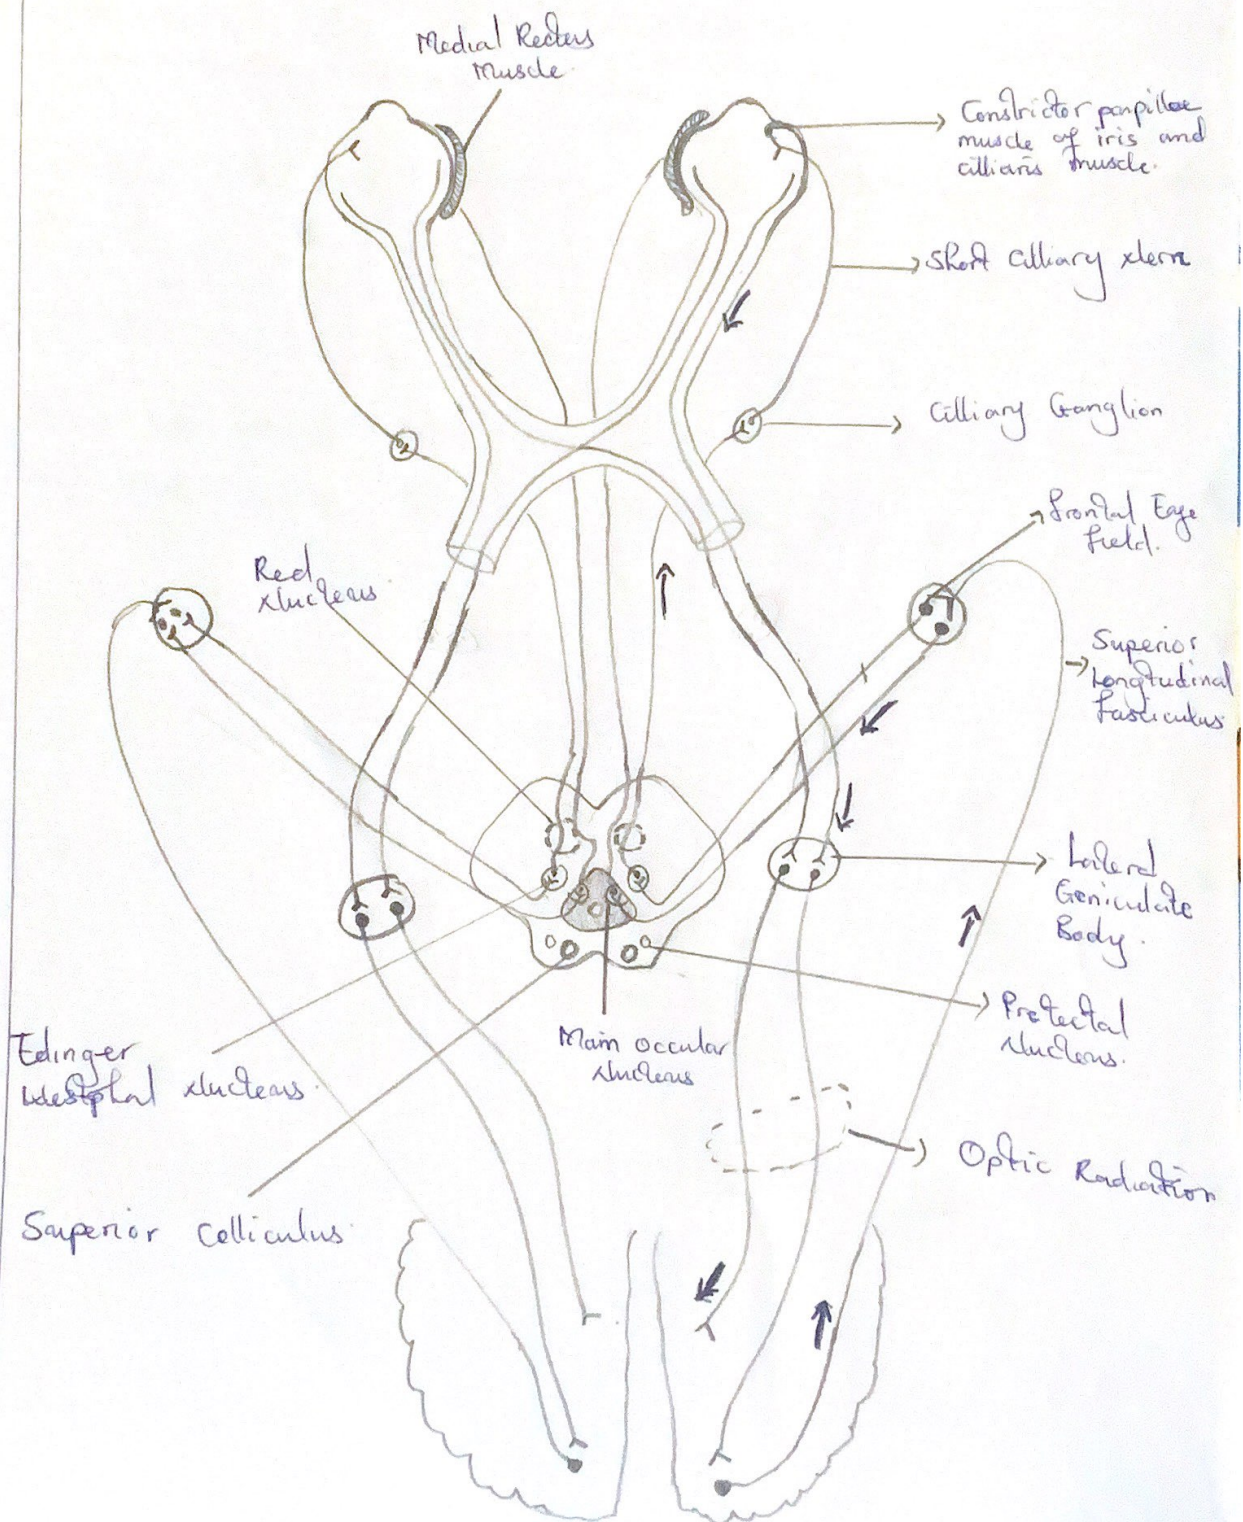 Medial Rectus
Muscle
Constrictor pupillae
muscle of iris and
cilliaris muscle.
Short Cilliary Nerve
Cilliary Ganglion
Frontal Eye
Field.
Red
Nucleus
Superior
Longtudinal
Fasciculus
Lateral
Geniculate
Body.
Pretectal
Nucleus.
Main occular
Nucleus
Edinger
Westphal Nucleus
Optic Radiation
Superior Colliculus